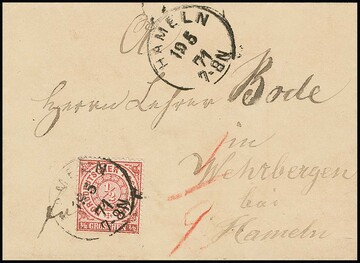 HAMELN
19 5
71
7-8N
Herrn Lehrer Bode
in
Wehrbergen
bei
Hameln.
19 5
71
7-8N
1/2
GROSCHEN